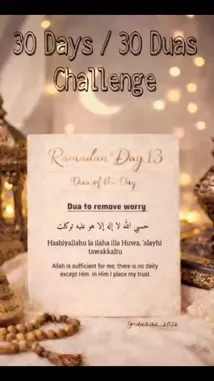 30 Days / 30 Duas
Challenge
Ramadan Day 13
Dua of the Day
Dua to remove worry
حسبي الله لا إله إلا هو عليه توكلت
Hasbiyallahu la ilaha illa Huwa, 'alayhi
tawakkaltu
Allah is sufficient for me; there is no deity
except Him. In Him I place my trust.